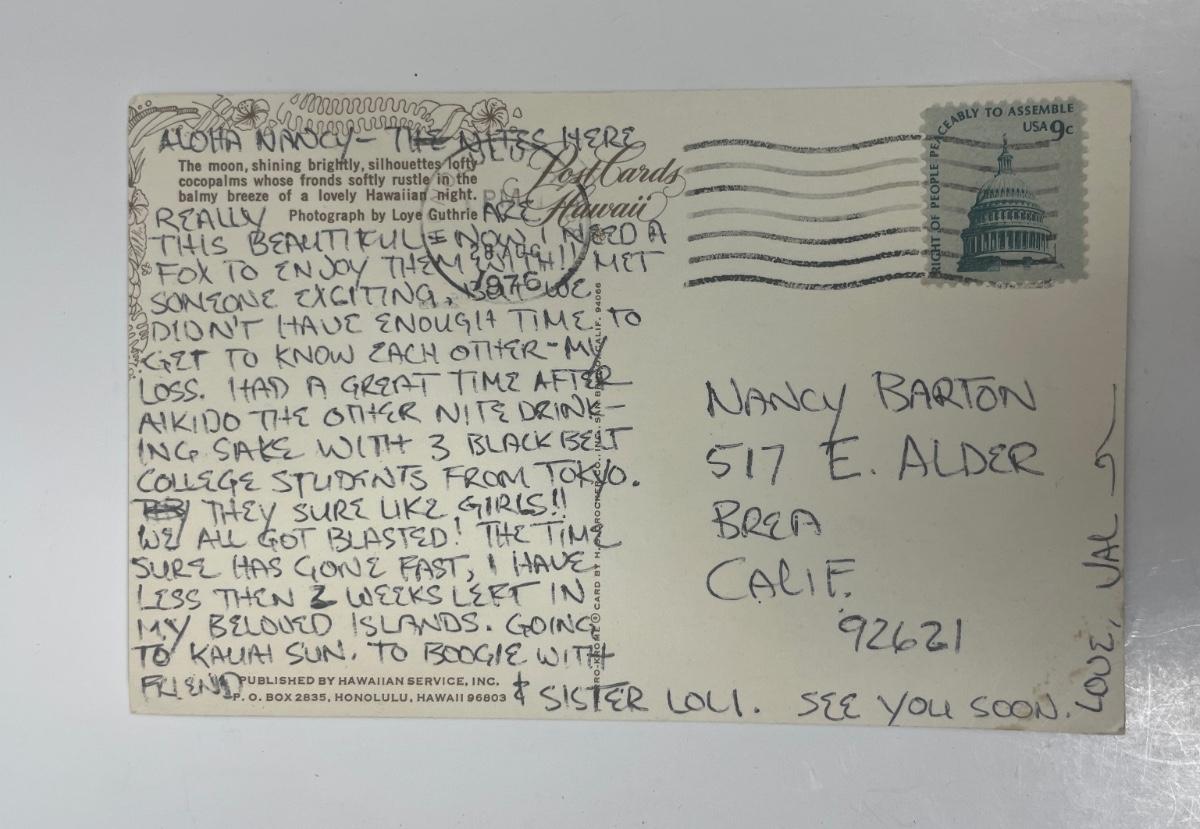 ALOHA NANCY - THE NITES HERE
The moon, shining brightly, silhouettes lofty
cocopalms whose fronds softly rustle in the
balmy breeze of a lovely Hawaiian night.
Photograph by Loye Guthrie
REALLY ARE
THIS BEAUTIFUL - NOW I NEED A
FOX TO ENJOY THEM WITH!! MET
SOMEONE EXCITING, BUT WE
DIDN'T HAVE ENOUGH TIME TO
GET TO KNOW EACH OTHER - MY
LOSS. HAD A GREAT TIME AFTER
AIKIDO THE OTHER NITE DRINK-
ING SAKE WITH 3 BLACK BELT
COLLEGE STUDENTS FROM TOKYO.
THEY SURE LIKE GIRLS!!
WE ALL GOT BLASTED! THE TIME
SURE HAS GONE FAST, I HAVE
LESS THEN 2 WEEKS LEFT IN
MY BELOVED ISLANDS. GOING
TO KAUAI SUN. TO BOOGIE WITH
FRIEND & SISTER LOLI. SEE YOU SOON.
LOVE, VAL
PUBLISHED BY HAWAIIAN SERVICE, INC.
P. O. BOX 2835, HONOLULU, HAWAII 96803
Post Cards
Hawaii
PM
1976
RIGHT OF PEOPLE PEACEABLY TO ASSEMBLE
USA 9c
NANCY BARTON
517 E. ALDER
BREA
CALIF.
92621
CARD BY H. CROCKER CO., INC., SAN BRUNO, CALIF. 94066